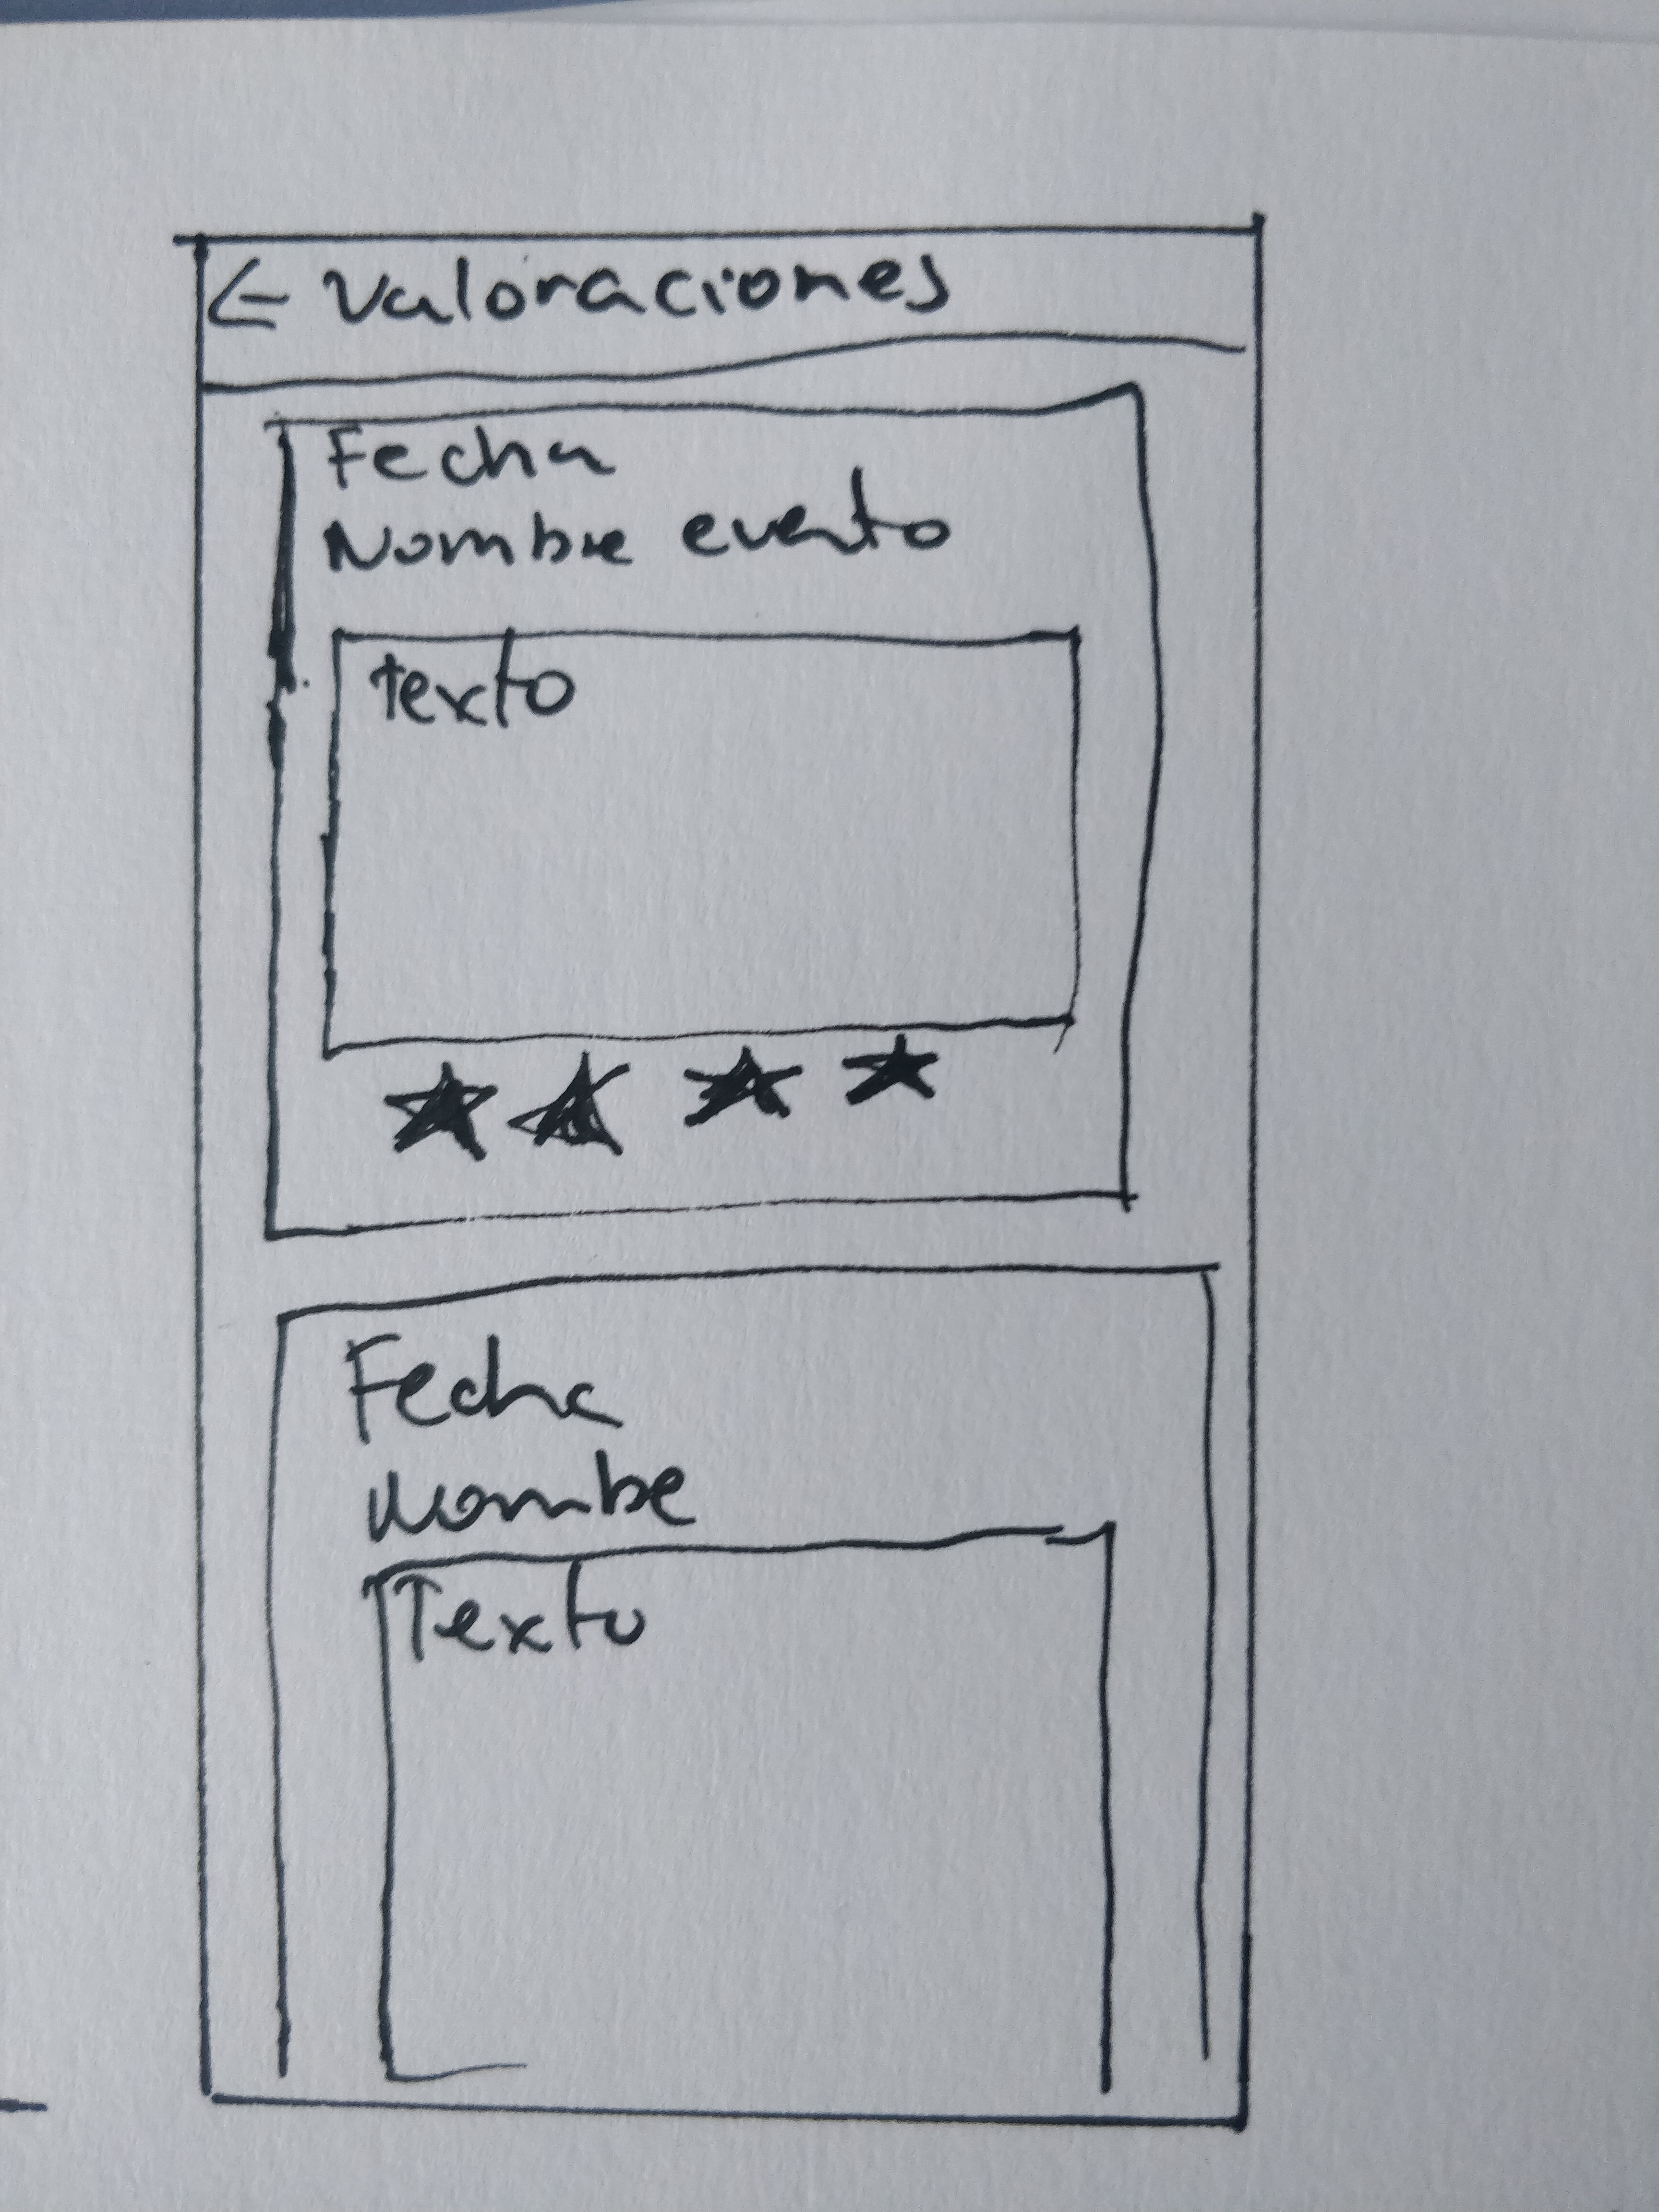 ← Valoraciones
Fecha
Nombre evento
Texto
Fecha
Nombre
Texto